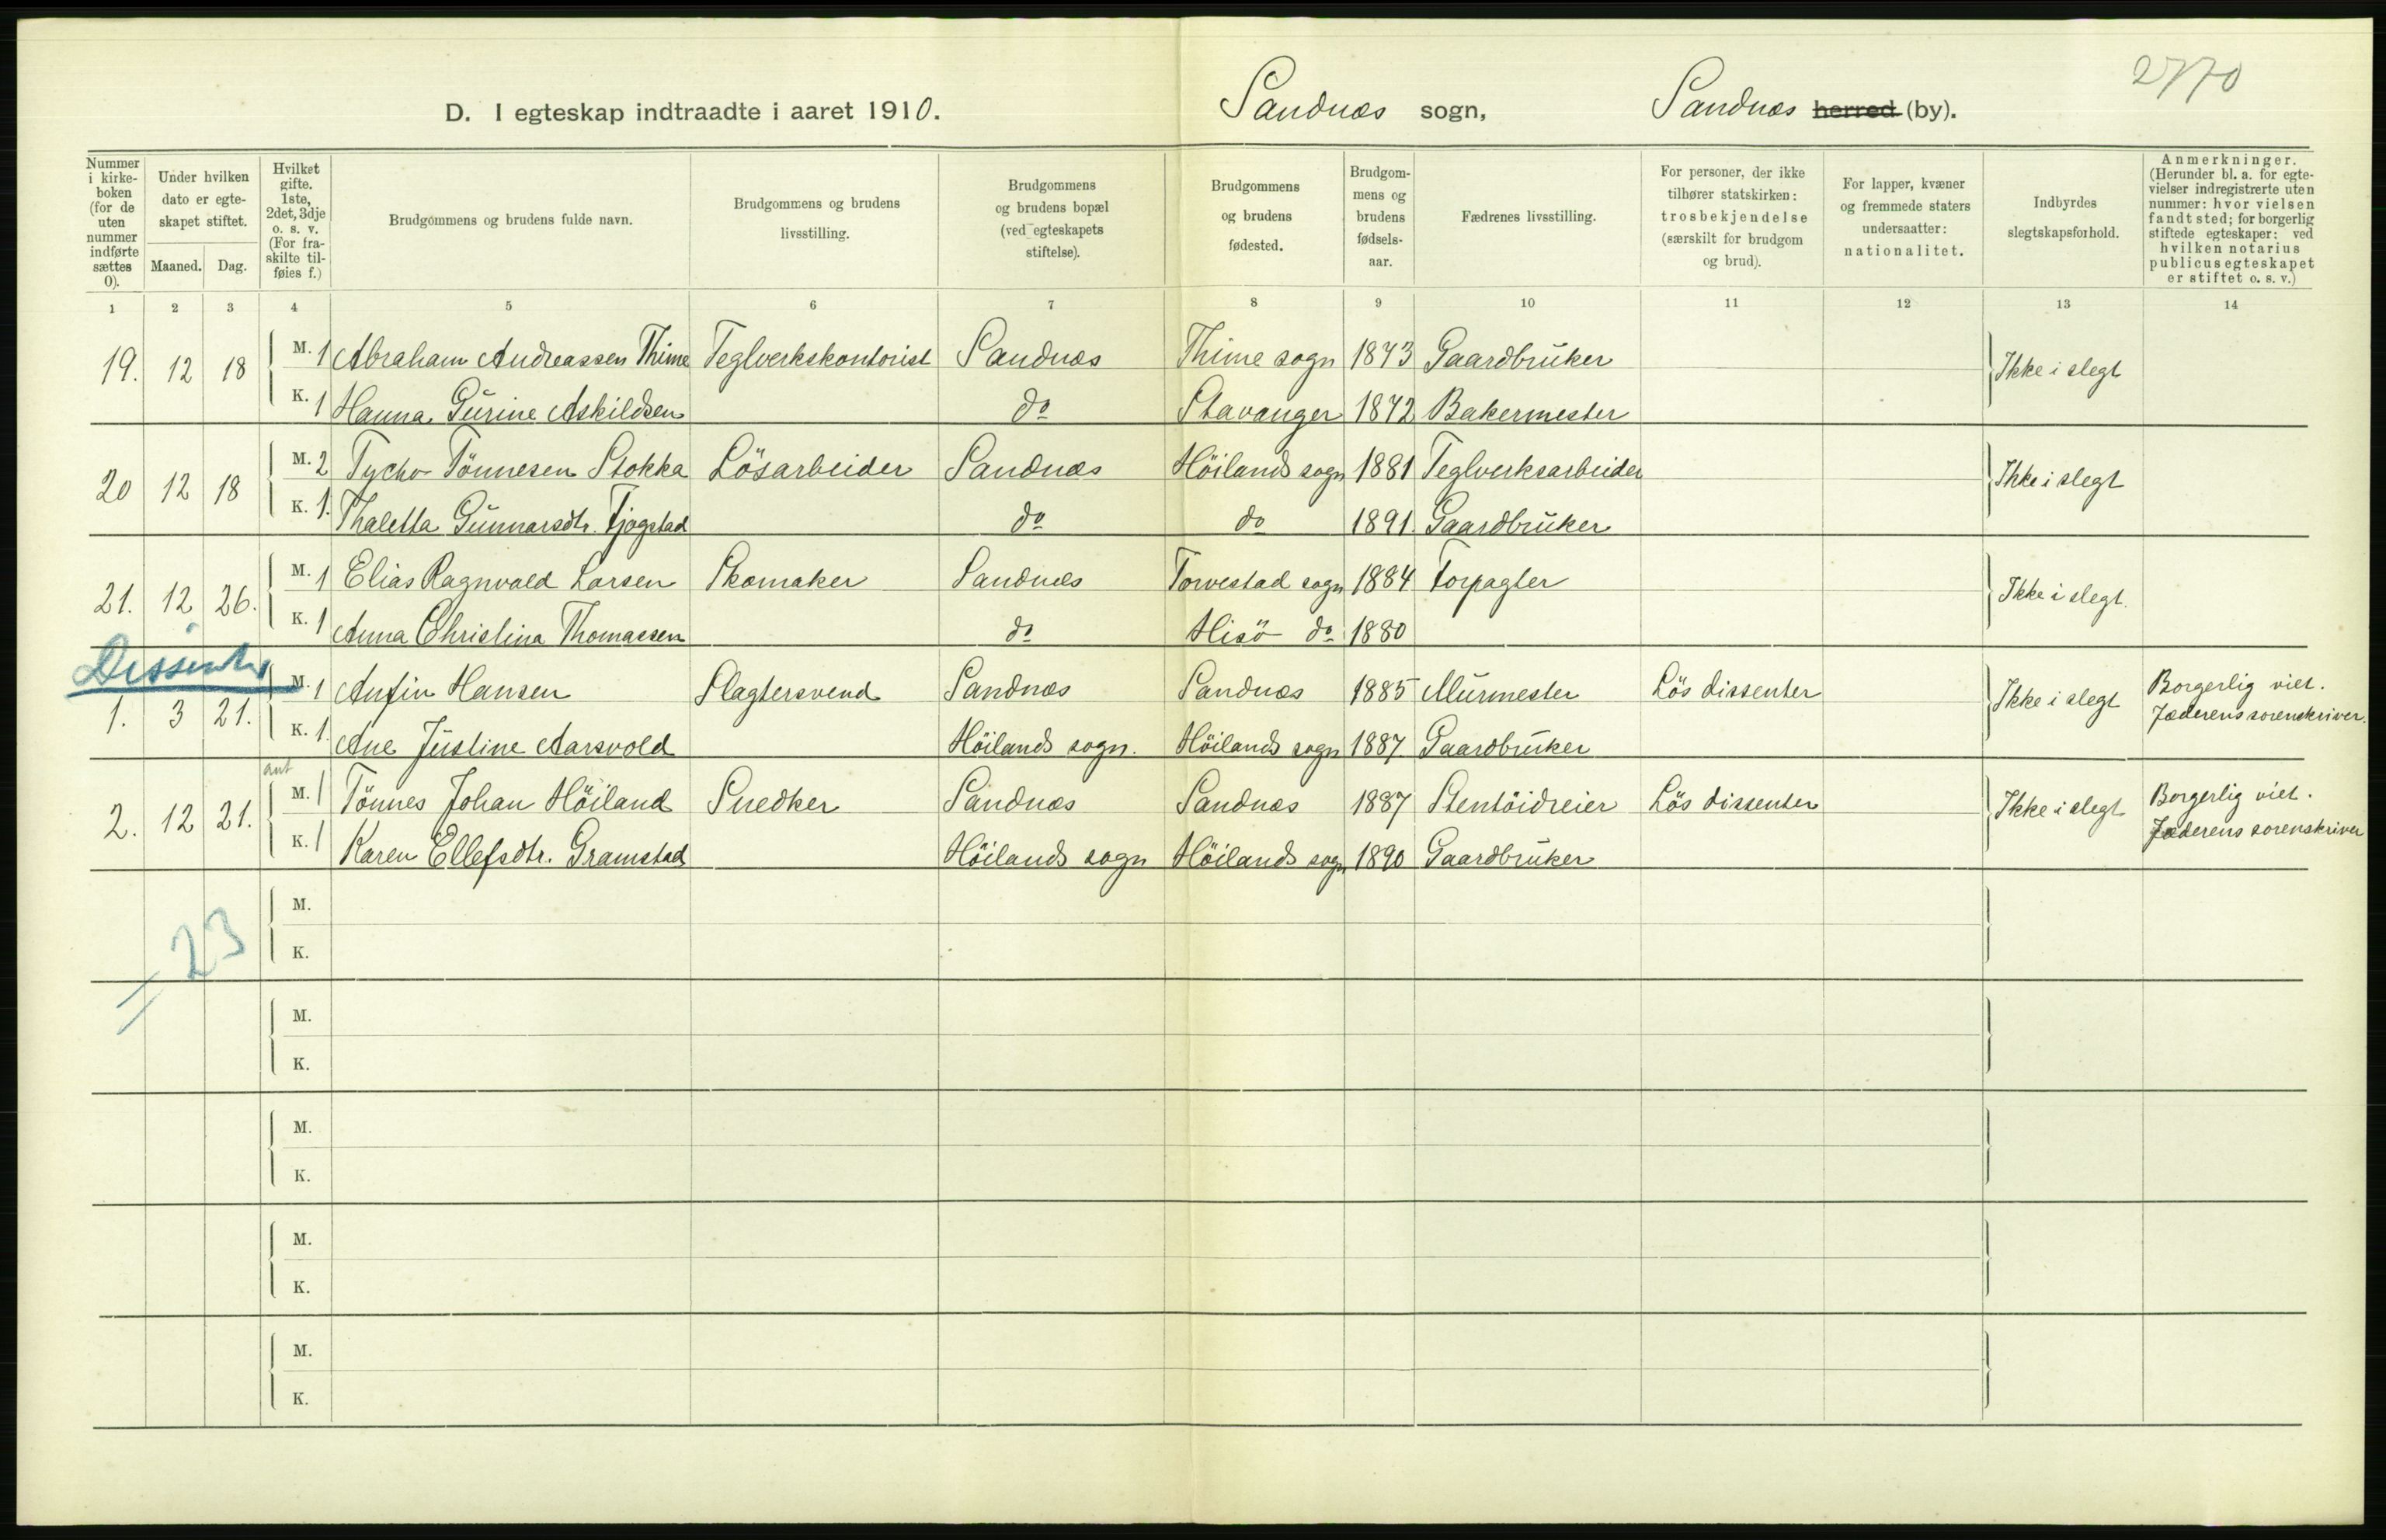 2770
D. I egteskap indtraadte i aaret 1910. Sandnæs sogn, Sandnæs herred (by).
Nummer i kirkeboken (for de uten nummer indførte sættes 0).
Under hvilken dato er egteskapet stiftet.
Maaned. Dag.
Hvilket gifte. 1ste, 2det, 3dje o. s. v. (For fraskilte tilføies f.)
Brudgommens og brudens fulde navn.
Brudgommens og brudens livsstilling.
Brudgommens og brudens bopæl (ved egteskapets stiftelse).
Brudgommens og brudens fødested.
Brudgommens og brudens fødselsaar.
Fædrenes livsstilling.
For personer, der ikke tilhører statskirken: trosbekjendelse (særskilt for brudgom og brud).
For lapper, kvæner og fremmede staters undersaatter: nationalitet.
Indbyrdes slegtskapsforhold.
Anmerkninger. (Herunder bl. a. for egtevielser indregistrerte uten nummer: hvor vielsen fandt sted; for borgerlig stiftede egteskaper: ved hvilken notarius publicus egteskapet er stiftet o. s. v.)
1 2 3 4 5 6 7 8 9 10 11 12 13 14
19. 12 18 M. 1 Abraham Andreassen Thime Teglverkskontorist Sandnæs Thime sogn 1873 Gaardbruker Ikke i slegt
K. 1 Hanna Gurine Askildsen do Stavanger 1872 Bakermester
20 12 18 M. 2 Tycho Tönnesen Stokka Lösarbeider Sandnæs Höilands sogn 1881 Teglverksarbeider Ikke i slegt
K. 1. Thaletta Gunnarsdtr. Tjogstad do do 1891. Gaardbruker
21. 12 26. M. 1 Elias Ragnvald Larsen Skomaker Sandnæs Torvestad sogn 1884 Forpagter Ikke i slegt.
K. 1 Anna Christina Thomassen do Hisö do 1880
Dissenter
1. 3 21. M. 1 Anfin Hansen Slagtersvend Sandnæs Sandnæs 1885 Murmester Lös dissenter Ikke i slegt Borgerlig viet. Jæderens sorenskriver.
K. 1. Ane Justine Aarsvold Höilands sogn. Höilands sogn 1887 Gaardbruker
ant
2. 12 21. M. 1 Tönnes Johan Höiland Snedker Sandnæs Sandnæs 1887 Stentöidreier Lös dissenter Ikke i slegt Borgerlig viet. Jæderens sorenskriver
K. 1 Karen Ellefsdtr. Gramstad Höilands sogn Höilands sogn 1890 Gaardbruker
= 23
M.
K.
M.
K.
M.
K.
M.
K.
M.
K.